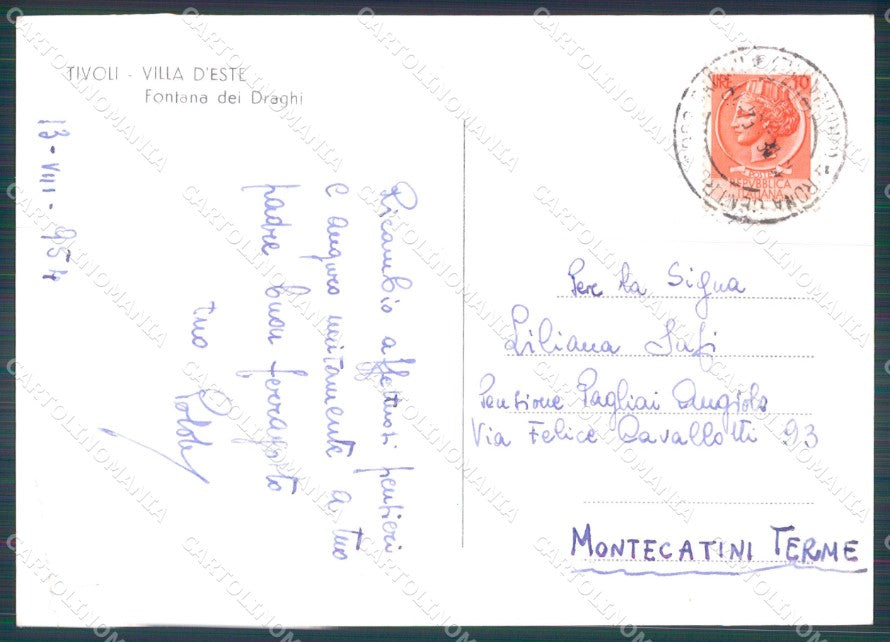 TIVOLI - VILLA D'ESTE
Fontana dei Draghi
13-VIII-954
Ricambio affettuosi pensieri
e auguro unitamente a tuo
padre buon ferragosto
tuo
LIRE 10
POSTE
REPUBBLICA
ITALIANA
Per la Signa
Liliana
Pensione Pagliai Angiolo
Via Felice Cavallotti 93
MONTECATINI TERME
CARTOLINOMANIA